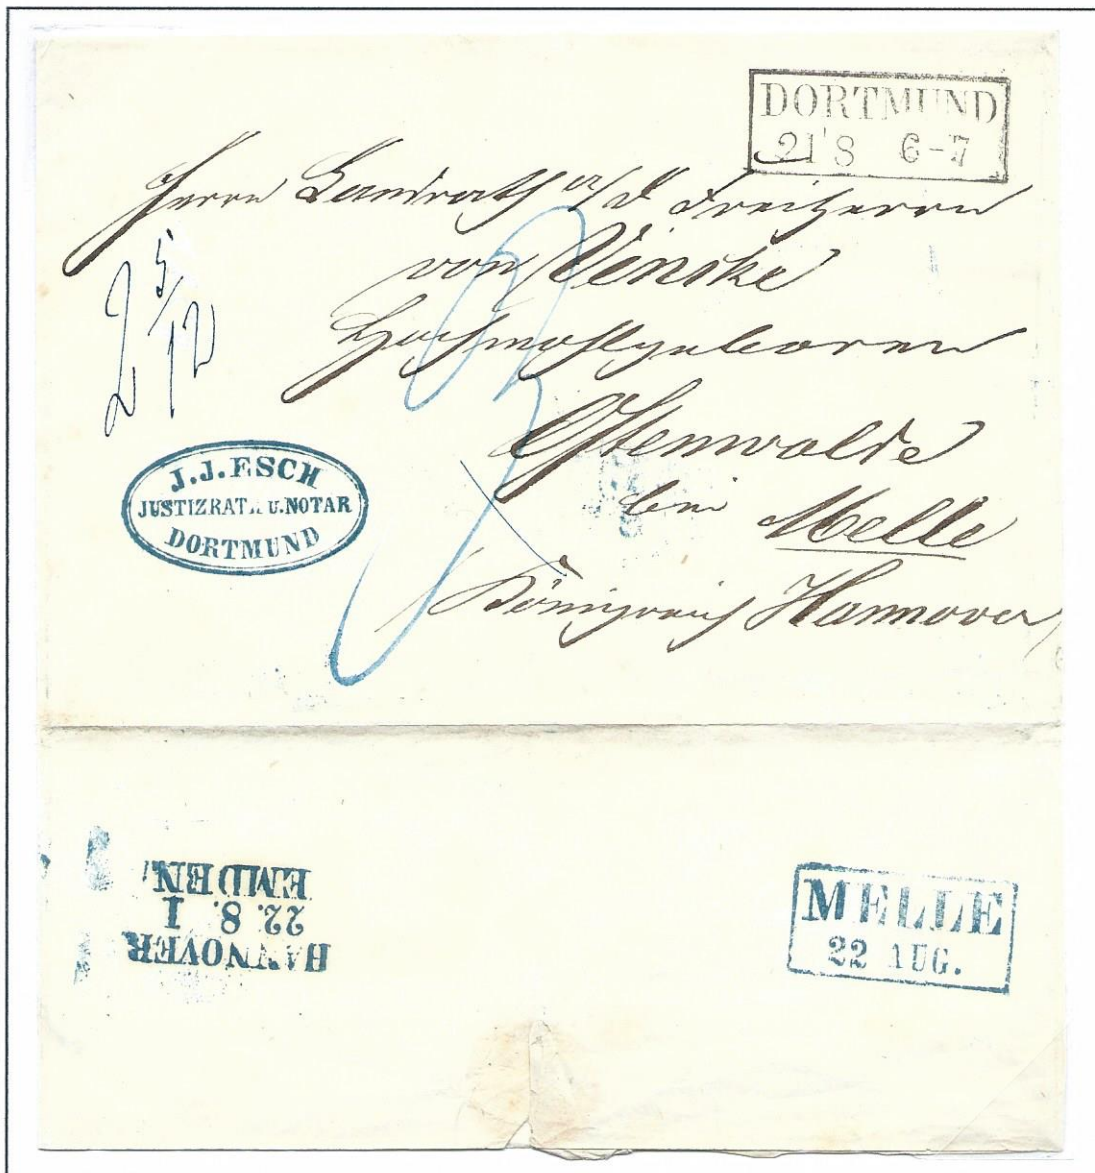 DORTMUND
21 8 6-7
Herrn Landrath a/d Freiherrn
von Vincke
Hochwohlgeboren
Ostenwalde
bei Melle
Königreich Hannover
2 5/12
3
J.J.ESCH
JUSTIZRATH U.NOTAR
DORTMUND
HANNOVER
22. 8. I
EMDEN
MELLE
22 AUG.